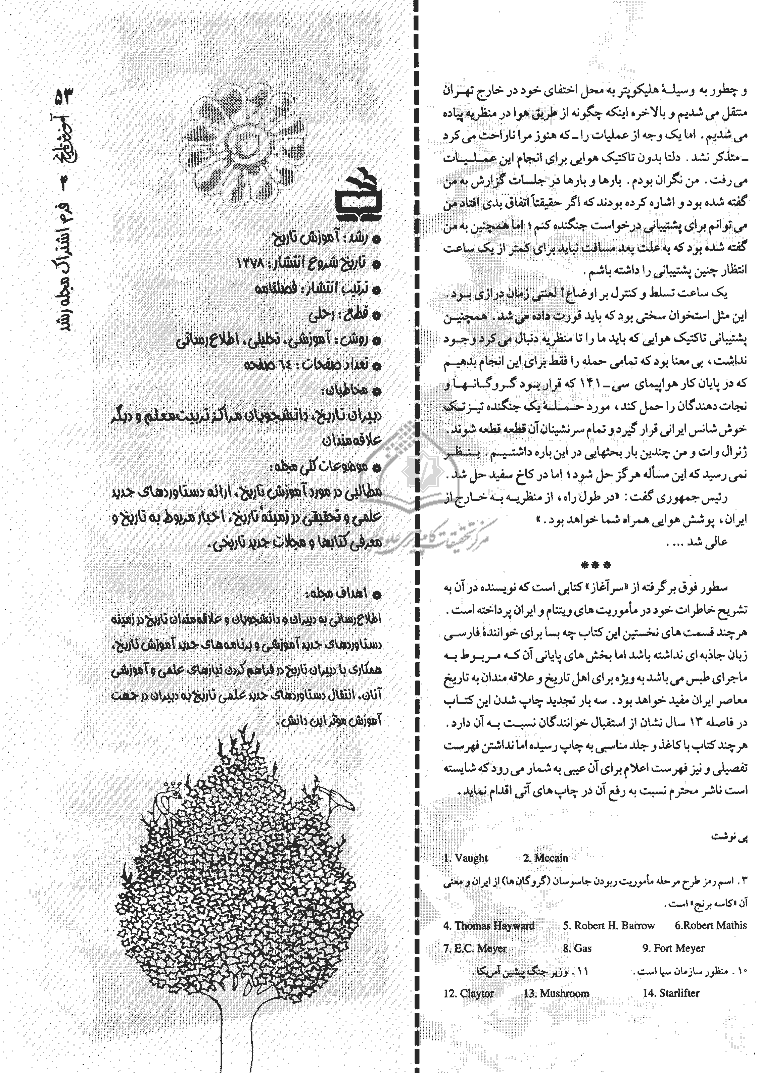 و چطور به وسیلهٔ هلیکوپتر به محل اختفای خود در خارج تهران
منتقل می شدیم و بالاخره اینکه چگونه از طریق هوا در منظریه پیاده
می شدیم. اما یک وجه از عملیات را ـ که هنوز مرا ناراحت می کرد
ـ متذکر نشد. دلتا بدون تاکتیک هوایی برای انجام این عملیات
می رفت. من نگران بودم. بارها و بارها در جلسات گزارش به من
گفته شده بود و اشاره کرده بودند که اگر حقیقتاً اتفاق بدی افتاد من
می توانم برای پشتیبانی درخواست جنگنده کنم؛ اما همچنین به من
گفته شده بود که به علت بعد مسافت نباید برای کمتر از یک ساعت
انتظار چنین پشتیبانی را داشته باشم.
یک ساعت تسلط و کنترل بر اوضاع! لعنتی زمان درازی بود.
این مثل استخوان سختی بود که باید قورت داده می شد. همچنین
پشتیبانی تاکتیک هوایی که باید ما را تا منظریه دنبال می کرد وجود
نداشت، بی معنا بود که تمامی حمله را فقط برای این انجام بدهیم
که در پایان کار هواپیمای سی ـ ۱۴۱ که قرار بود گروگانها و
نجات دهندگان را حمل کند، مورد حملهٔ یک جنگنده تیزتک
خوش شانس ایرانی قرار گیرد و تمام سرنشینان آن قطعه قطعه شوند.
ژنرال وات و من چندین بار بحثهایی در این باره داشتیم. بنظر
نمی رسید که این مسأله هرگز حل شود؛ اما در کاخ سفید حل شد.
رئیس جمهوری گفت: «در طول راه، از منظریه به خارج از
ایران، پوشش هوایی همراه شما خواهد بود.»
عالی شد ....
***
سطور فوق برگرفته از «سرآغاز» کتابی است که نویسنده در آن به
تشریح خاطرات خود در مأموریت های ویتنام و ایران پرداخته است.
هرچند قسمت های نخستین این کتاب چه بسا برای خوانندهٔ فارسی
زبان جاذبه ای نداشته باشد اما بخش های پایانی آن که مربوط به
ماجرای طبس می باشد به ویژه برای اهل تاریخ و علاقه مندان به تاریخ
معاصر ایران مفید خواهد بود. سه بار تجدید چاپ شدن این کتاب
در فاصله ۱۳ سال نشان از استقبال خوانندگان نسبت به آن دارد.
هرچند کتاب با کاغذ و جلد مناسبی به چاپ رسیده اما نداشتن فهرست
تفصیلی و نیز فهرست اعلام برای آن عیبی به شمار می رود که شایسته
است ناشر محترم نسبت به رفع آن در چاپ های آتی اقدام نماید.
پی نوشت
1. Vaught 2. Mccain
۳. اسم رمز طرح مرحله مأموریت ربودن جاسوسان (گروگان ها) از ایران و معنی
آن «کاسه برنج» است.
4. Thomas Hayward 5. Robert H. Barrow 6.Robert Mathis
7. E.C. Meyer 8. Gas 9. Fort Meyer
۱۰. منظور سازمان سیا است. ۱۱. وزیر جنگ پیشین آمریکا.
12. Claytor 13. Mushroom 14. Starlifter
رشد: آموزش تاریخ
تاریخ شروع انتشار: ۱۳۷۸
ترتیب انتشار: فصلنامه
قطع: رحلی
روش: آموزشی، تحلیلی، اطلاع رسانی
تعداد صفحات: ۶۴ صفحه
مخاطبان:
دبیران تاریخ، دانشجویان مراکز تربیت معلم و دیگر
علاقه مندان
موضوعات کلی مجله:
مطالبی در مورد آموزش تاریخ، ارائه دستاوردهای جدید
علمی و تحقیقی در زمینهٔ تاریخ، اخبار مربوط به تاریخ و
معرفی کتابها و مجلات جدید تاریخی.
اهداف مجله:
اطلاع رسانی به دبیران و دانشجویان و علاقه مندان تاریخ در زمینه
دستاوردهای جدید آموزشی و برنامه های جدید آموزش تاریخ،
همکاری با دبیران تاریخ در فراهم کردن نیازهای علمی و آموزشی
آنان، انتقال دستاوردهای جدید علمی تاریخ به دبیران در جهت
آموزش موثر این دانش.
۵۳ آموزش تاریخ فرم اشتراک مجله رشد